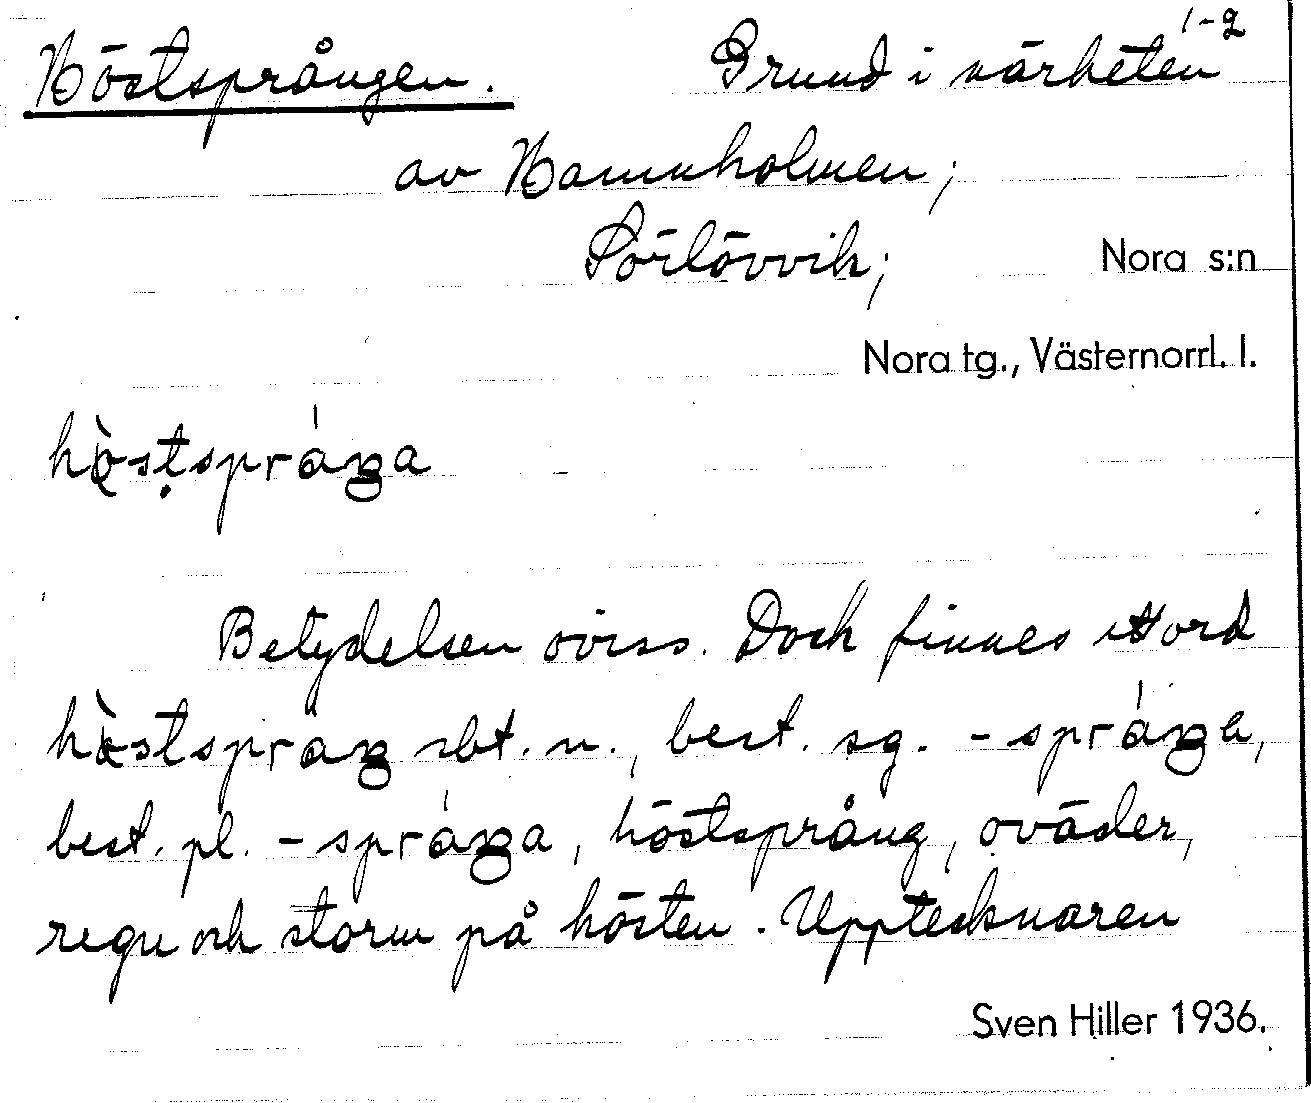 1-2
Höstsprången. Grund i närheten
av Hamnholmen;
Sörlövvik; Nora s:n
Nora tg., Västernorrl. l.
hö̀stspráŋa
Betydelsen oviss. Dock finnes ett ord
hö̀stspraŋ sbt. n., best. sg. -spráŋa,
best. pl. -spráŋa, höstsprång, oväder,
regn och storm på hösten. Upptecknaren
Sven Hiller 1936.